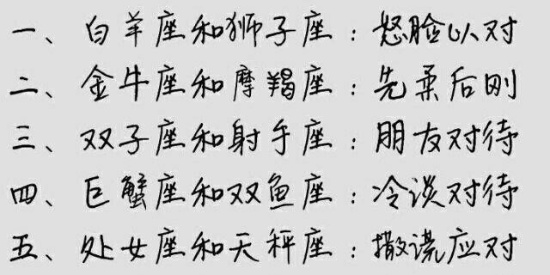 一、白羊座和狮子座：怒脸以对
二、金牛座和摩羯座：先柔后刚
三、双子座和射手座：朋友对待
四、巨蟹座和双鱼座：冷淡对待
五、处女座和天秤座：撒谎应对